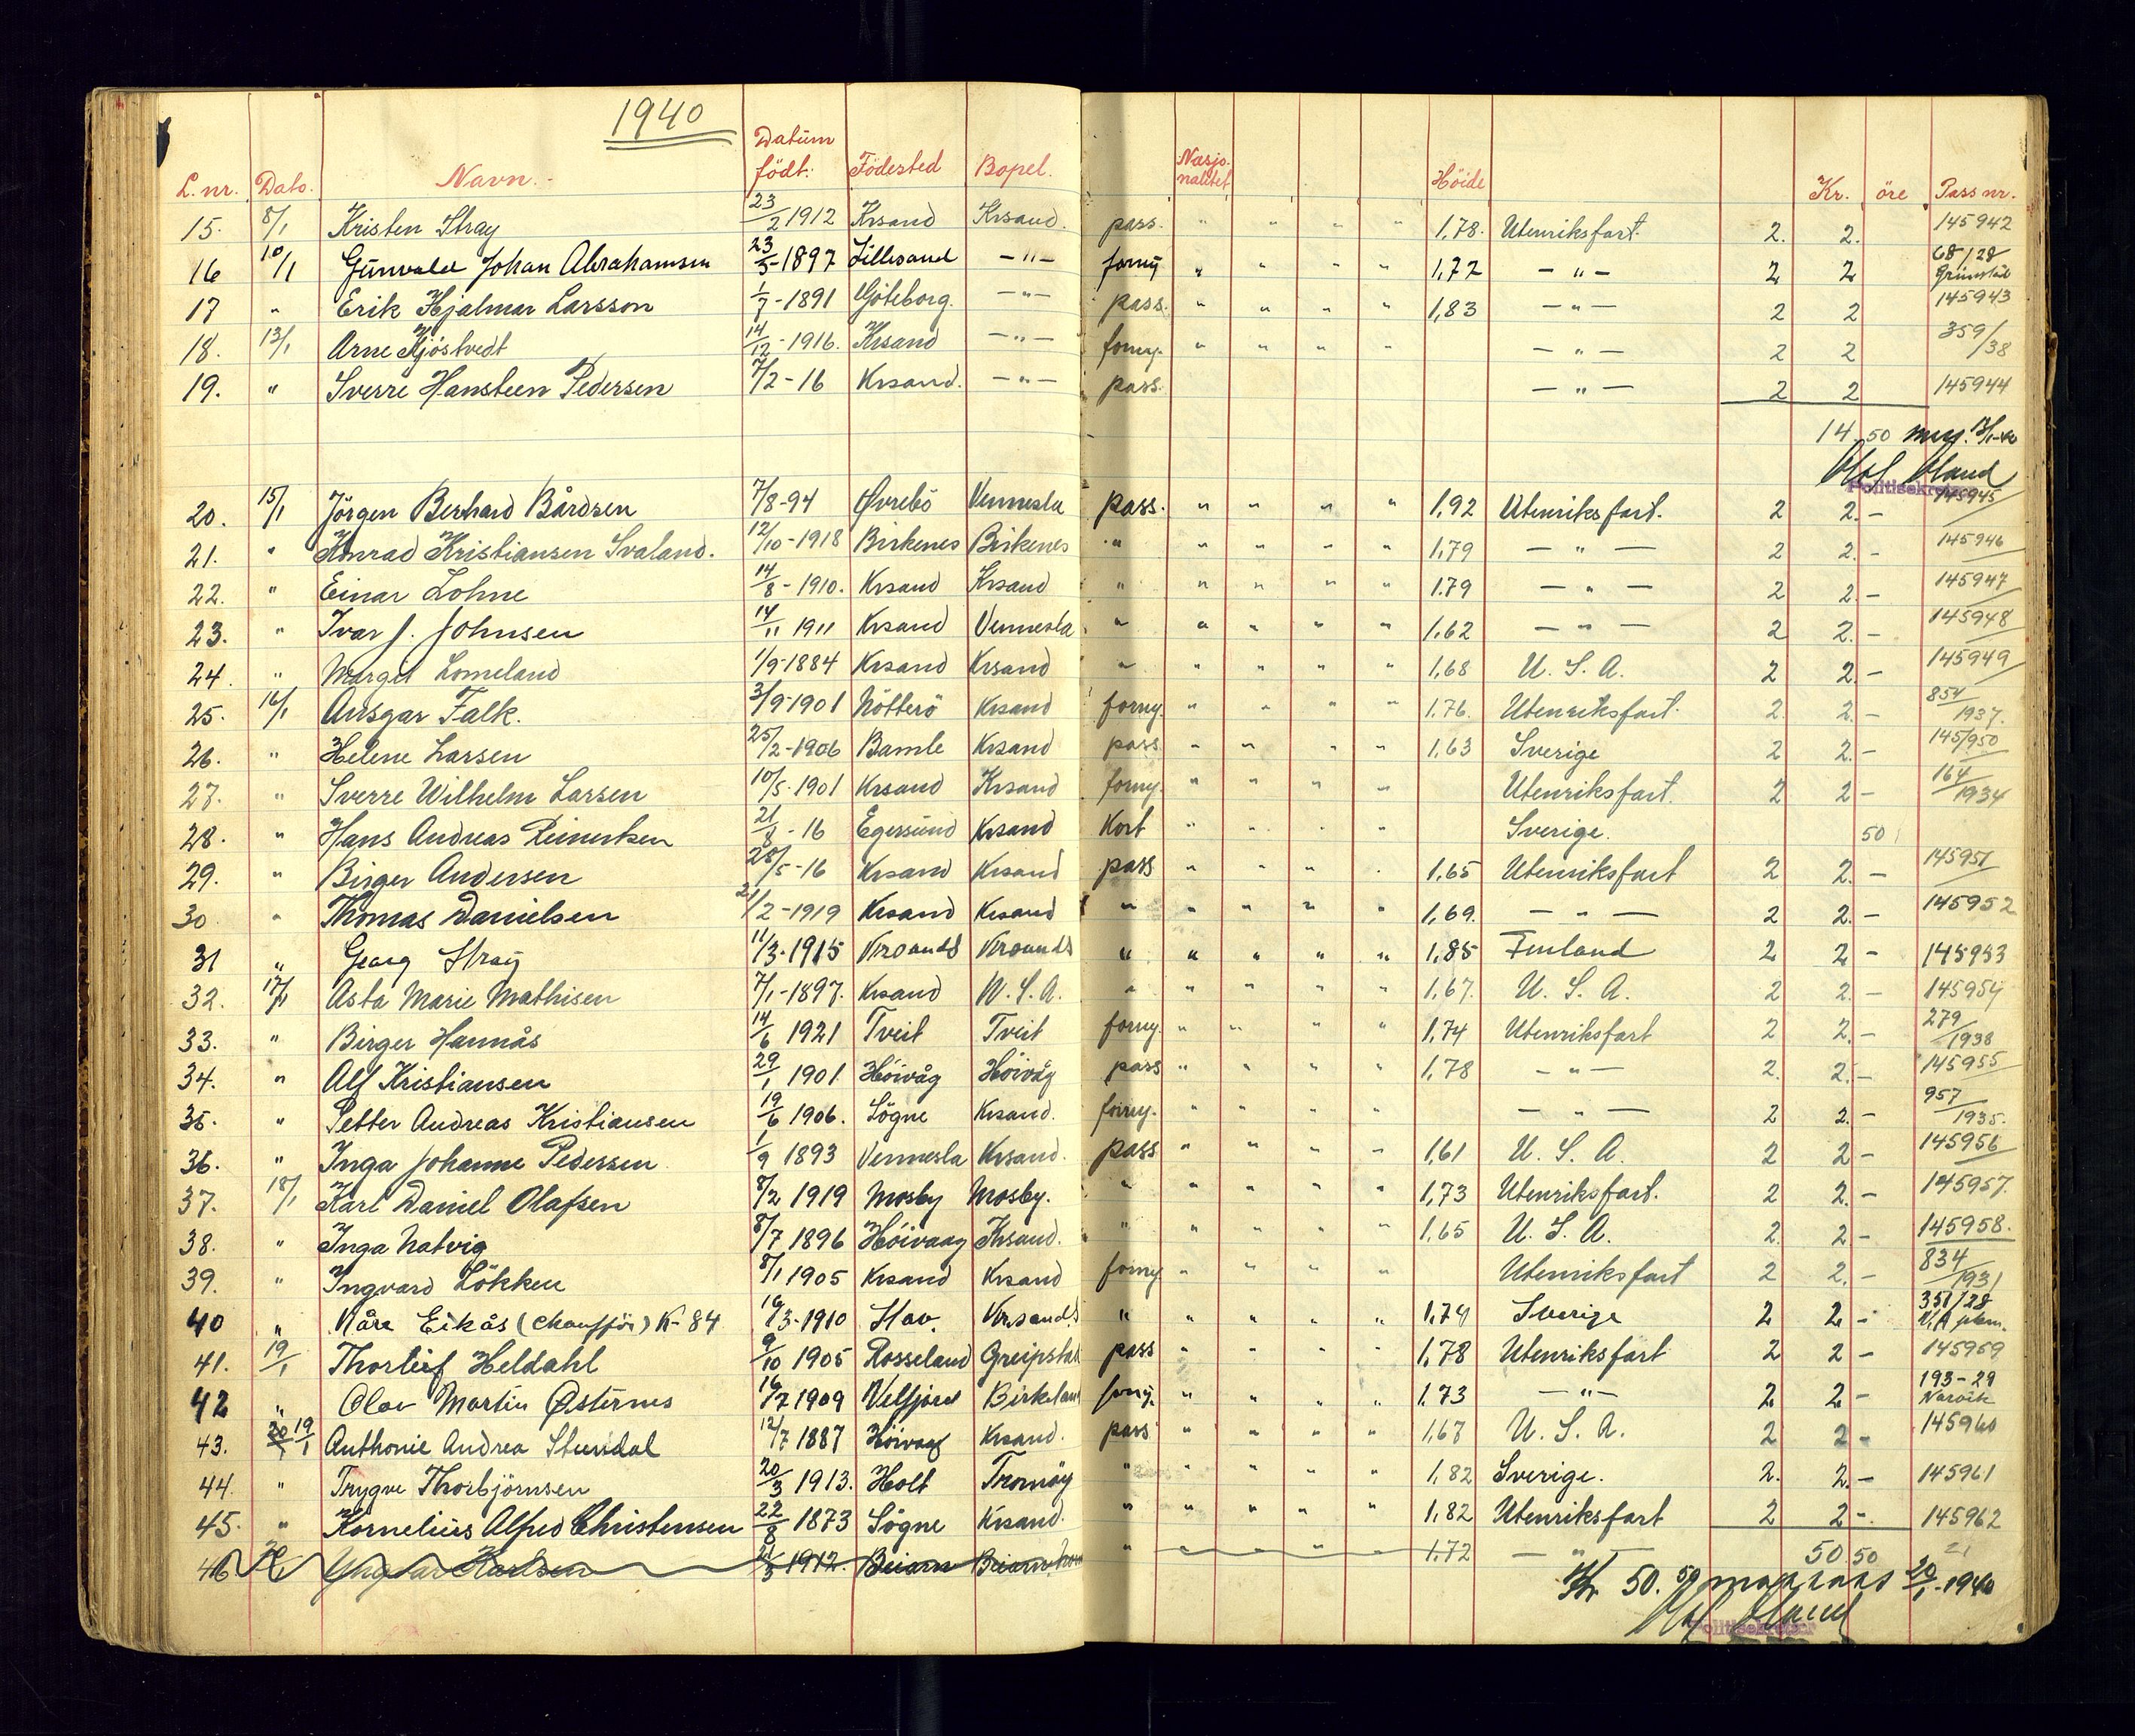 1940
L. nr. Dato. Navn. Datum födt: Födested Bopel. Nasjo- nalitet Höide Kr. öre Pass nr.
15. 8/1 Kristen Stray 23/2 1912 Krsand Krsand. pass. " " " " 1,78. Utenriksfart. 2. 2. 145942
16 10/1 Gunvald Johan Abrahamsen 23/5-1897 Lillesand -"- forny " " " " 1,72 -"- 2 2 68/28 Grimstad
17 " Erik Hjalmar Larsson 1/7-1891 Göteborg. -"- pass. " " " " 1,83 -"- 2 2 145943
18. 13/1 Arne Kjöstvedt 14/12-1916. Krsand -"- forny. " " " " -"- 2 2 359/38
19. " Sverre Hansteen Pedersen 7/2-16 Krsand. -"- pass. -"- 2 2 145944
14 50
Olaf Aaland
Politisekretær
20. 15/1 Jörgen Berhard Bårdsen 7/8-94 Øvrebö Vennesla pass. " " " " 1,92 Utenriksfart. 2 2.- 145945
21. " Konrad Kristiansen Svaland. 12/10-1918 Birkenes Birkenes " " " " " 1,79 -"- 2 2.- 145946
22. " Einar Lohne 14/8-1910. Krsand Krsand " " " " " 1.79 -"- 2 2.- 145947
23. " Ivar J. Johnsen 14/11 1911 Krsand Vennesla " " " " " 1,62 -"- 2 2.- 145948
24. " Margit Lomeland 1/9-1884 Krsand Krsand " " " " " 1,68 U. S. A. 2 2.- 145949
25. 16/1 Ansgar Falk. 3/9-1901 Nötterö Krsand forny. " " " " 1,76. Utenriksfart. 2. 2.- 854/1937.
26. " Helene Larsen 25/2-1906 Bamle Krsand pass " " " " 1,63 Sverige 2 2.- 145950
27. " Sverre Wilhelm Larsen 10/5-1901 Krsand Krsand forny. " " " " Utenriksfart. 2 2- 164/1934
28. " Hans Andreas Reinertsen 21/8-16 Egersund Krsand Kort " " " " Sverige. 50
29. " Birger Andersen 28/5-16 Krsand Krsand pass " " " " 1,65 Utenriksfart 2 2.- 145951
30 " Thomas Danielsen 21/2-1919 Krsand Krsand " " " " " 1,69. -"- 2 2.- 145952
31 " Georg Stray 11/3-1915 Krsands Krsands " " " " " 1,85 Finland 2 2- 145953
32. 17/1 Asta Marie Mathisen 7/1-1897. Krsand U. S. A. " " " " " 1,67. U. S. A. 2 2.- 145954
33. " Birger Hannås 14/6 1921 Tveit Tveit forny. " " " " 1,74 Utenriksfart 2 2.- 279/1938
34. " Alf Kristiansen 29/1 1901 Höivåg Höivåg pass " " " " 1,78 -"- 2. 2.- 145955
35. " Petter Andreas Kristiansen 19/6 1906. Sögne Krsand. forny. " " " " -"- 2 2.- 957/1935.
36. " Inga Johanne Pedersen 1/9 1893 Vennesla Krsand. pass " " " " 1,61 U. S. A. 2 2- 145956
37. 18/1 Karl Daniel Olafsen 8/2 1919 Mosby Mosby. " " " " " 1,73 Utenriksfart. 2 2.- 145957.
38. " Inga Natvig 8/7 1896 Höivaag Krsand. " " " " " 1,65 U. S. A. 2. 2- 145958.
39. " Ingvard Lökken 8/1 1905 Krsand Krsand forny " " " " Utenriksfart 2 2.- 834/1931
40 " Kåre Eikås (chaufför) K-84 16/3-1910 Krsands " " " " " 1,74 Sverige 2 2- 351/28
41. 19/1 Thorleif Heldahl 9/10 1905 Rosseland Greipstad pass " " " " 1,78 Utenriksfart 2 2- 145959
42 " Olav Martin Østernes 16/7 1909 Velfjord Birkeland forny. " " " " 1.73 -"- 2 2- 193-29 Narvik
43. 20/1 19/1 Anthonie Andrea 12/7 1887 Höivaag Krsand. pass " " " " 1,67 U. S. A. 2 2- 145960
44. " Trygve Thorbjörnsen 20/3 1913. Holt Tromöy " " " " " 1,82 Sverige. 2. 2.- 145961
45. " Kornelius Alfred Christensen 22/8 1873 Sögne Krsand. " " " " " 1,82 Utenriksfart 2 2-. 145962
46 Yngvar Karlsen 21/3 1912. Beiarn " 1.72 -"- 50.50
Kr 50.50 20/1-1940
Olaf Aaland
Politisekretær